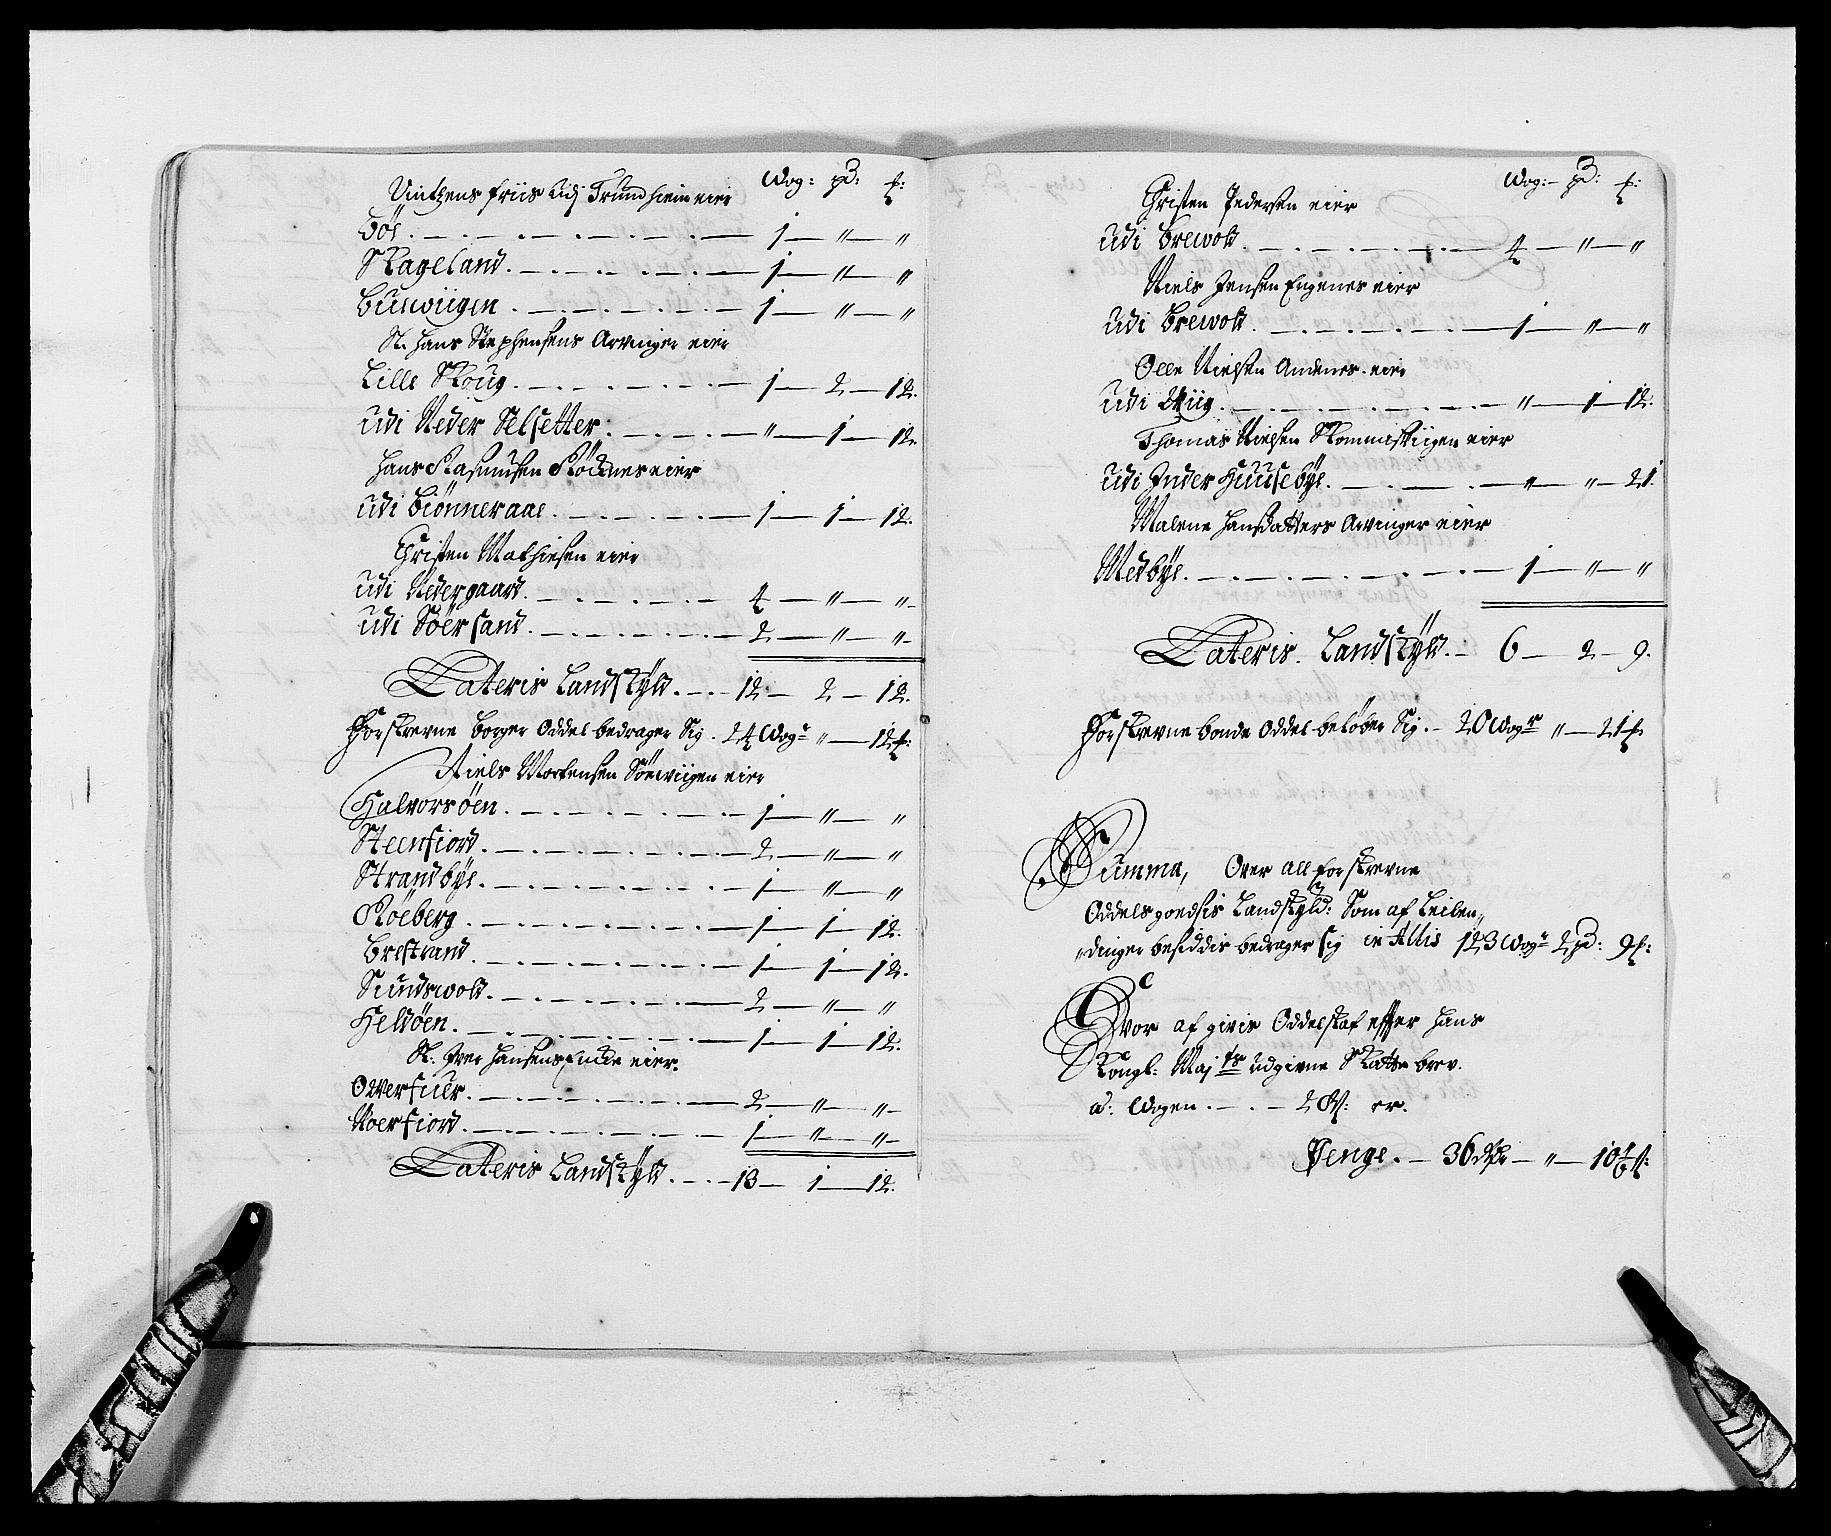 Wog: pd: f:
Vintzens friis udj Trundhiem eier
Böe. 1 — " — "
Skageland. 1 — " — "
Buswiigen. 1 — " — "
Sl. Hans Stephensens Arvinger eier
Lille Skoug. 1 — 2 — 12.
Udi Neder Selsetter. " — 1 — 12.
Hans Rasmusen Röcknes eier
Udi Biönneraae. 1 — 1 — 12.
Christen Mathiesen eier
Udi Nedergaard. 4 — " — "
Udi Söersand. 2 — " — "
Lateris Landskyld. 12 — 2 — 12.
Forskrevne Borger Oddel bedrager Sig. 24 Wogr " — 12 f:
Niels Mortensen Sörwiigen eier
Halvorsöen. 1 — " — "
Steenfiord. 2 — " — "
Strandbye. 1 — " — "
Röeberg. 1 — 1 — 12.
Brestrand. 1 — 1 — 12.
Sundswold. 2 — " — "
Heldöen. 1 — 1 — 12.
Sl. Iver Hansens Encke eier.
Olverfuer. 2 — " — "
Noerfiord. 1 — " — "
Lateris Landskyld. 13 — 1 — 12.
Wog: pd: f:
Christen Pedersen eier
Udi Brewold. 4 — " — "
Niels Jensen Engenes eier
Udi Brewold. 1 — " — "
Olle Nielsen Andenes eier
Udi Wiig. " — 1 — 12.
Thomas Nielsen eier
Udi Inder Huusebye. " — " — 21.
Malene Hansdatters Arvinger eier
Medbye. 1 — " — "
Lateris Landskyld. 6 — 2 — 9.
Forskrevne bonde Oddel belöber Sig. 20 Wogr " — 21 f
Summa, Over all forskrevne
Oddels goedsis Landskyld: Som af Leilen„
„dinger besiddis bedrager sig in Allis 123 Wogr 2 pd: 9 f:
Hvor af givis Oddelskat effter Hans
Kongl: Maj ts udgivne Skatte brev.
a: Wogen. 2 er.
Penge. 36 — " — 10